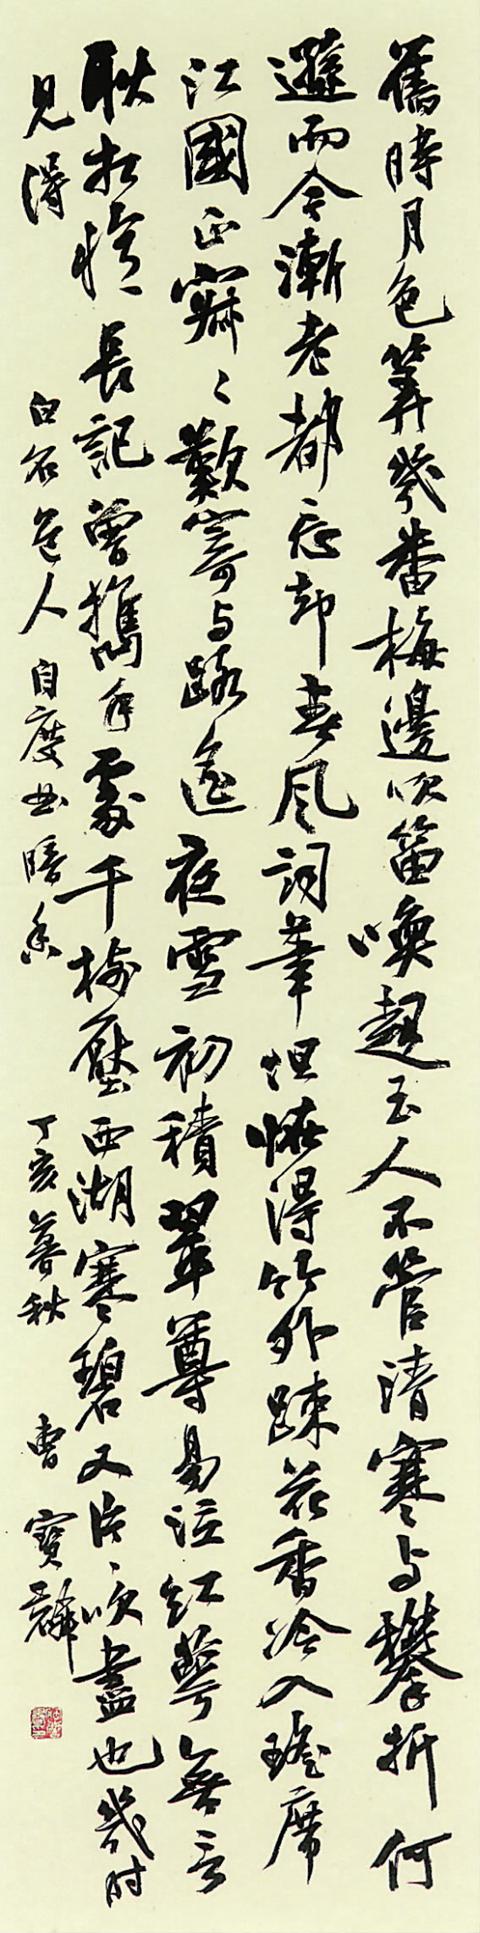 舊時月色算幾番梅邊吹笛喚起玉人不管清寒與攀折何
遜而今漸老都忘却春風詞筆但怪得竹外疎花香冷入瑤席
江國正寂〻歎寄与路遙夜雪初積翠尊易泣紅萼無言
耿相憶長記曾攜手處千樹壓西湖寒碧又片〻吹盡也幾時
見得 白石道人自度曲暗香 丁亥暮秋 曹寶麟